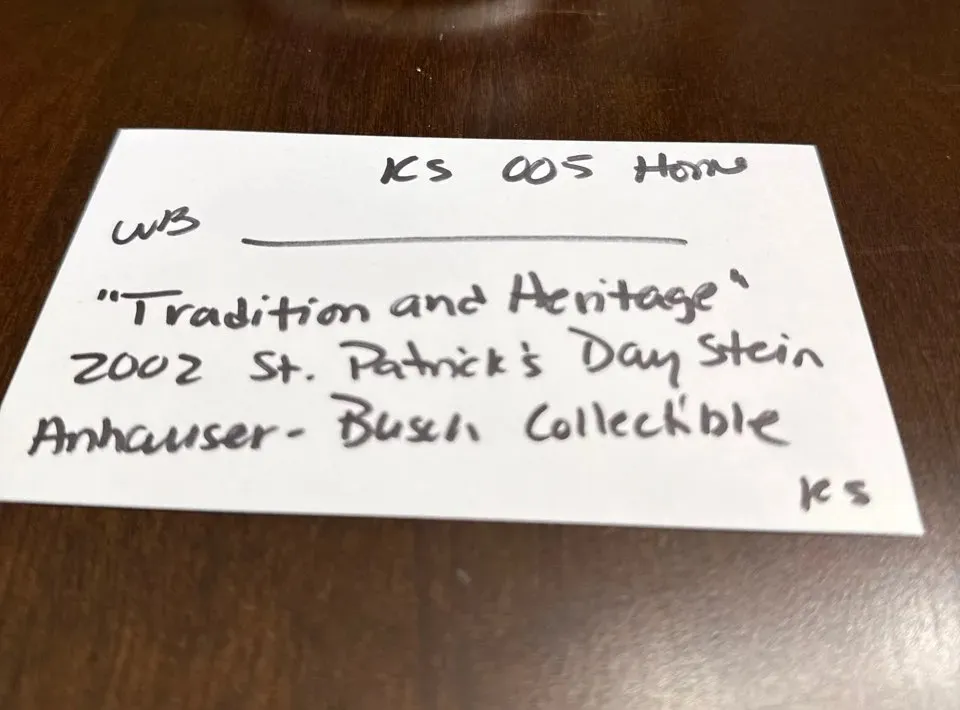 KS 005 Home
WB
"Tradition and Heritage"
2002 St. Patrick's Day Stein
Anhauser-Busch Collectible
KS